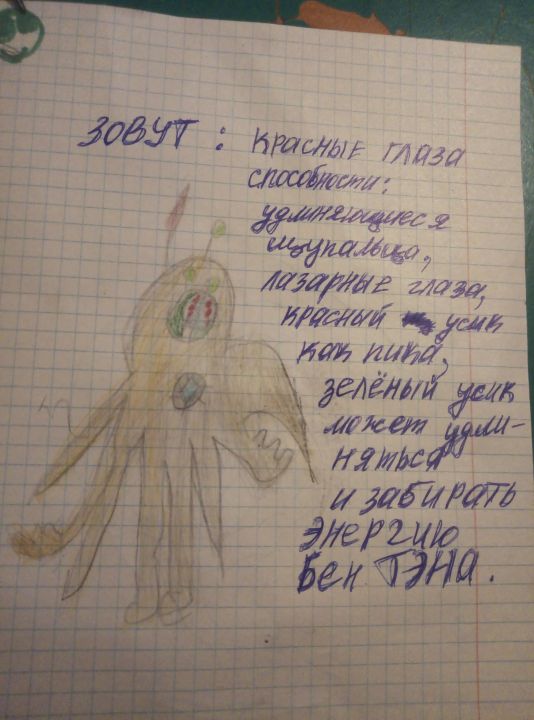 ЗОВУТ: КРАСНЫЕ ГЛАЗА
способности:
удлиняющиеся
щупальца,
лазарные глаза,
красный усик
как пика,
зелёный усик
может удли-
няться
и забирать
ЭНЕРГИЮ
Бен ТЭНА.